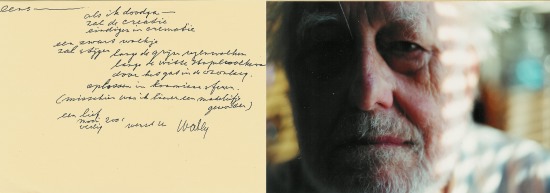 eens
als ik doodga —
zal de creatie
eindigen in crematie
een zwart wolkje
zal stijgen langs de grijze regenwolken
langs de witte stapelwolken
door het gat in de ozonlaag.
oplossen in
(misschien was ik liever een madeliefje
geworden)
een lief
mooi roos
veilig wenst je Wally